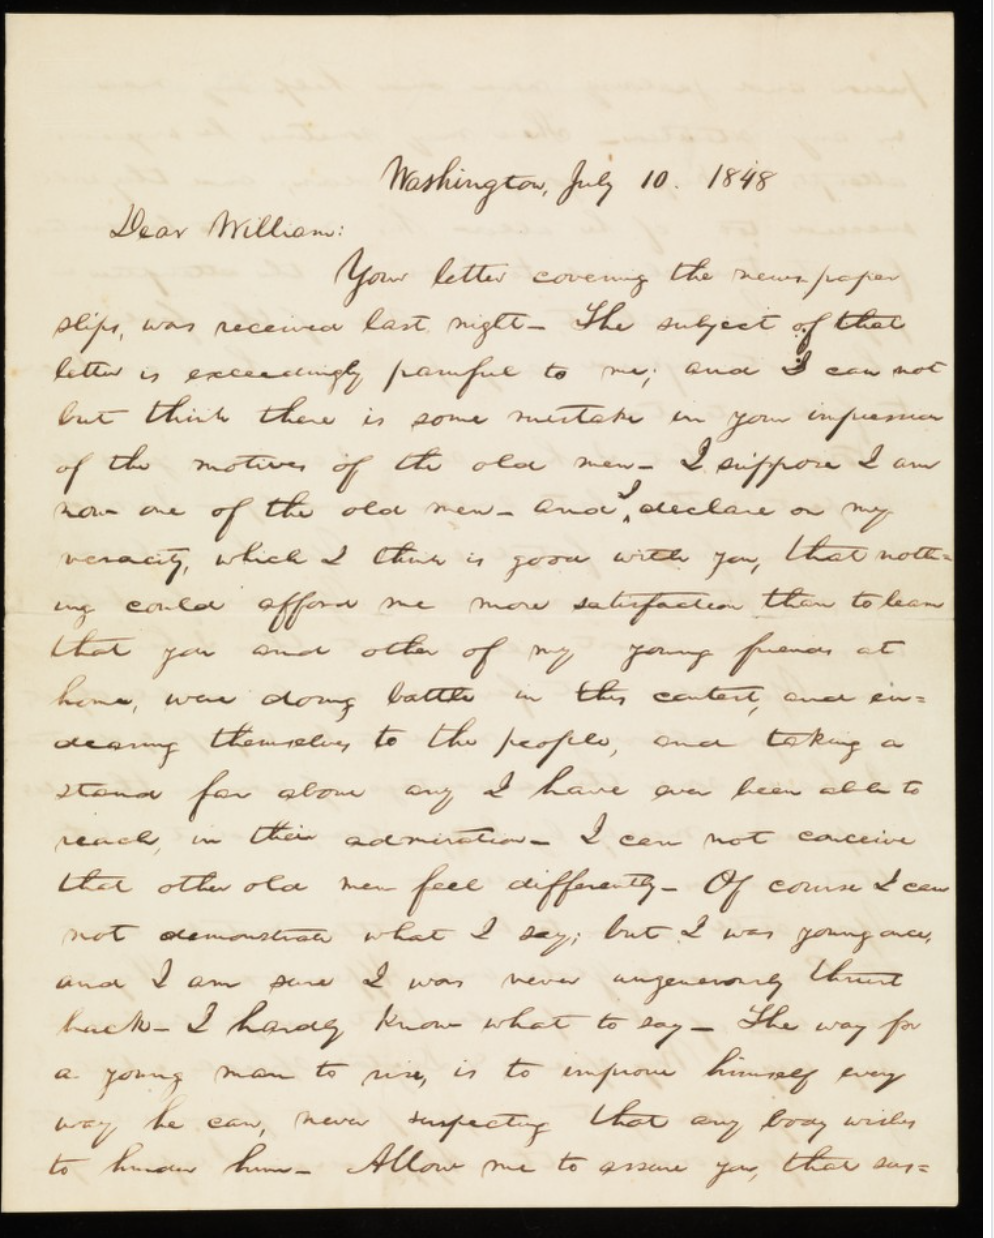 Washington, July 10. 1848
Dear William:
Your letter covering the news-paper
slips, was received last night— The subject of that
letter is exceedingly painful to me; and I can not
but think there is some mistake in your impression
of the motives of the old men— I suppose I am
now one of the old men— and I declare on my
veracity, which I think is good with you, that noth=
ing could afford me more satisfaction than to learn
that you and other of my young friends at
home, were doing battle in this contest, and en=
dearing themselves to the people, and taking a
stand far above any I have ever been able to
reach, in their admiration— I can not conceive
that other old men feel differently— Of course I can
not demonstrate what I say; but I was young once,
and I am sure I was never ungenerously thrust
back— I hardly know what to say— The way for
a young man to rise, is to improve himself every
way he can, never suspecting that any body wishes
to hinder him— Allow me to assure you, that sus=